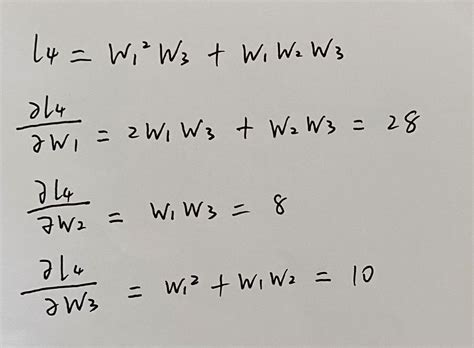 l₄ = W₁² W₃ + W₁ W₂ W₃
∂l₄/∂W₁ = 2 W₁ W₃ + W₂ W₃ = 28
∂l₄/∂W₂ = W₁ W₃ = 8
∂l₄/∂W₃ = W₁² + W₁ W₂ = 10